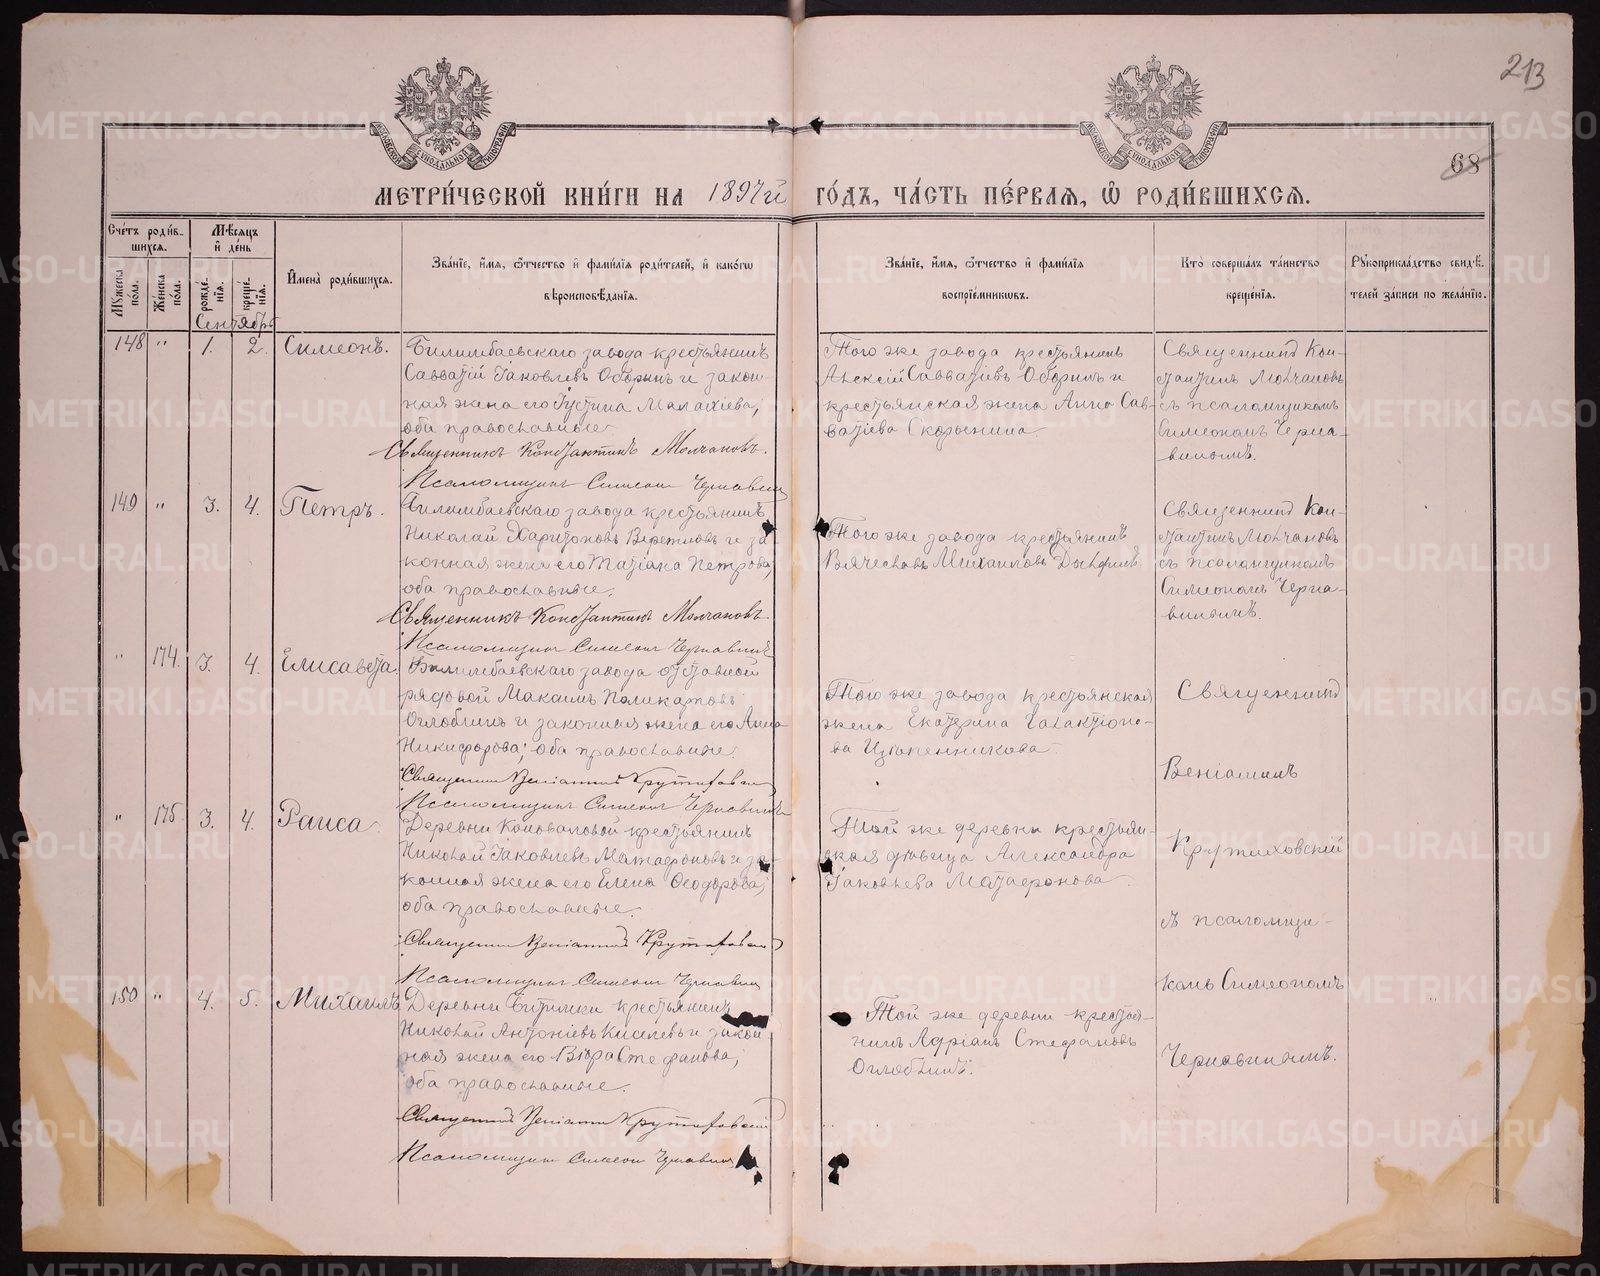 213
68
МЕТРИ́ЧЕСКОЙ КНИ́ГИ НА 1897й ГО́ДЪ, ЧА́СТЬ ПЕ́РВАЯ, Ѡ РОДИ́ВШИХСЯ.
Сче́тъ роди́в-
шихся.
Му́жеска по́ла.
Же́нска по́ла.
Мѣ́сяцъ
и де́нь
рожде́-
нія.
креще́-
нія.
Имена̀ роди́вшихся.
Зва́ніе, и́мя, о́тчество и фами́лія роди́телей, и како́гѡ
вѣроисповѣ́данія.
Зва́ніе, и́мя, о́тчество и фами́лія
воспріе́мниковъ.
Кто̀ соверша́лъ та́инство
креще́нія.
Рꙋкоприкла́дство свидѣ́-
телей за́писи по жела́нію.
Сентябрь
148 " 1. 2. Симеонъ.
Билимбаевскаго завода крестьянинъ
Савватій Іаковлевъ Оборинъ и закон-
ная жена его Іустина Малахіева,
оба православные
Священникъ Константинъ Молчановъ.
Псаломщикъ Симеонъ Чернавинъ
Того же завода крестьянинъ
Алексій Савватіевъ Оборинъ и
крестьянская жена Анна Сав-
ватіева Скорынина
Священникъ Кон-
стантинъ Молчановъ
съ псаломщикомъ
Симеономъ Черна-
винымъ.
149 " 3. 4. Петръ.
Билимбаевскаго завода крестьянинъ
Николай Харитоновъ и за
конная жена его Татіана Петрова,
оба православные.
Священникъ Константинъ Молчановъ
Псаломщикъ Симеонъ Чернавинъ
Того же завода крестьянинъ
Вячеславъ Михаиловъ
Священникъ Кон-
стантинъ Молчановъ
съ псаломщикомъ
Симеономъ Черна-
винымъ.
" 174. 3. 4. Елисавета.
Билимбаевскаго завода отставной
рядовой Максимъ Поликарповъ
Оглоблинъ и законная жена его Анна
Никифорова; оба православные.
Священникъ Веніаминъ Крутиховскій
Псаломщикъ Симеонъ Чернавинъ
Того же завода крестьянская
жена Екатерина Галактіоно-
ва
" 175. 3. 4. Раиса
Деревни Коноваловой крестьянинъ
Николай Іаковлевъ Матафоновъ и за-
конная жена его Елена Ѳеодорова;
оба православные.
Священникъ Веніаминъ Крутиховскій
Псаломщикъ Симеонъ Чернавинъ
Той же деревни крестьян-
ская дѣвица Александра
Іаковлева Матафонова
150 " 4. 5. Михаилъ
Деревни Битимки крестьянинъ
Николай Антоніевъ Киселевъ и закон-
ная жена его Вѣра Стефанова;
оба православные.
Священникъ Веніаминъ Крутиховскій
Псаломщикъ Симеонъ Чернавинъ
Той же деревни крестья-
нинъ Адріанъ Стефановъ
Оглоблинъ.
Священникъ
Веніаминъ
Крутиховскій
съ псаломщи-
комъ Симеономъ
Чернавинымъ.
METRIKI.GASO-URAL.RU